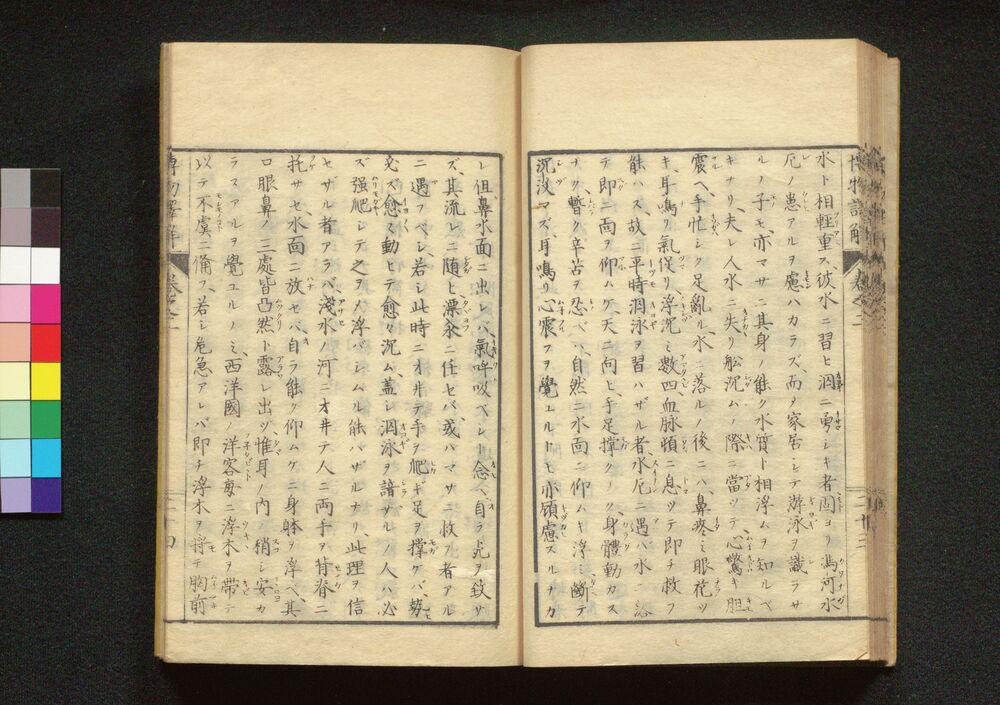 博物語解 卷之二 二十三
水ト相輕重ス、彼水ニ習ヒ泅ニ勇シキ者固ヨリ馮河水
厄ノ患アルヲ慮ハカラズ、而ヲ家居シテ游泳ヲ識ラサ
ルノ子モ、亦マサニ其身ノ能ク水質ト相浮ムヲ知ルベ
キナリ、夫レ人水ニ失リ舩沉ムノ際ニ當ツテ心驚キ胆
震ヘ、手忙シク足亂ル水ニ落ルノ後ニハ鼻疼ミ眼花ツ
キ、耳鳴リ氣促リ浮沉ミ數四、血脉頓ニ息ツテ即チ救フ
能ハス、故ニ平時泅泳ヲ習ハザル者、水厄ニ遇ハ水ニ
テ即ニ両ヲ仰ムケ、天ニ向ヒ手足撑クノ身體動カス
ナク、暫ク辛苦ヲ忍ベハ、自然ニ水面ニ仰ムキ浮ミ、斷テ
沉没マズ、耳鳴リ心震フヲ覺エルトモ亦顧慮スルナカ
レ、但鼻水面ニ出レバ、氣呼吸ベシト念ヘ、自ラ死ヲ致サ
ズ、其流レニ随ヒ漂汆ニ任セバ、或ハマサニ救フ者アル
ニ遇フベシ、若シ此時ニオ井テ手ヲ爬キ足ヲ撑グバ、勢
必ズ愈〻動ヒテ愈〻沉ム、蓋シ泅泳ヲ諳ヅルノ人ハ必
ズ强爬シテ之ヲメ浮バシムル能ハザルナリ、此理ヲ信
セザル者アラバ淺水ノ河ニオ井テ人ニ両手ヲ背脊ニ
托サセ、水面ニ放セバ、自ラ能ク仰ムケニ身躰ヲ浮ベ、其
口眼鼻ノ三處皆凸然ト露レ出ヅ、惟耳ノ内ノ稍シ安カ
ラスアルヲ覺ユルノミ、西洋國ノ洋客毎ニ浮木ヲ帶テ
以テ不虞ニ備フ、若シ危急アレバ即チ浮木ヲ将テ胸前
卷之二 二十四